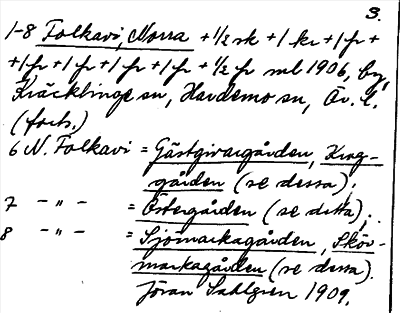 3.
1-8 Folkavi, Norra + 1/2 sk + 1 kr + 1 fr +
+ 1 fr + 1 fr + 1 fr + 1 fr + 1/2 fr ml 1906, by,
Kräcklinge sn, Hardemo sn, Ör. l.
(forts.)
6 N. Folkavi = Gästgivargården, Kungs-
gården (se dessa);
7 - " - = Östergården (se detta);
8 - " - = Sjömarkagården, Sköv-
markagården (se dessa).
Jöran Sahlgren 1909.